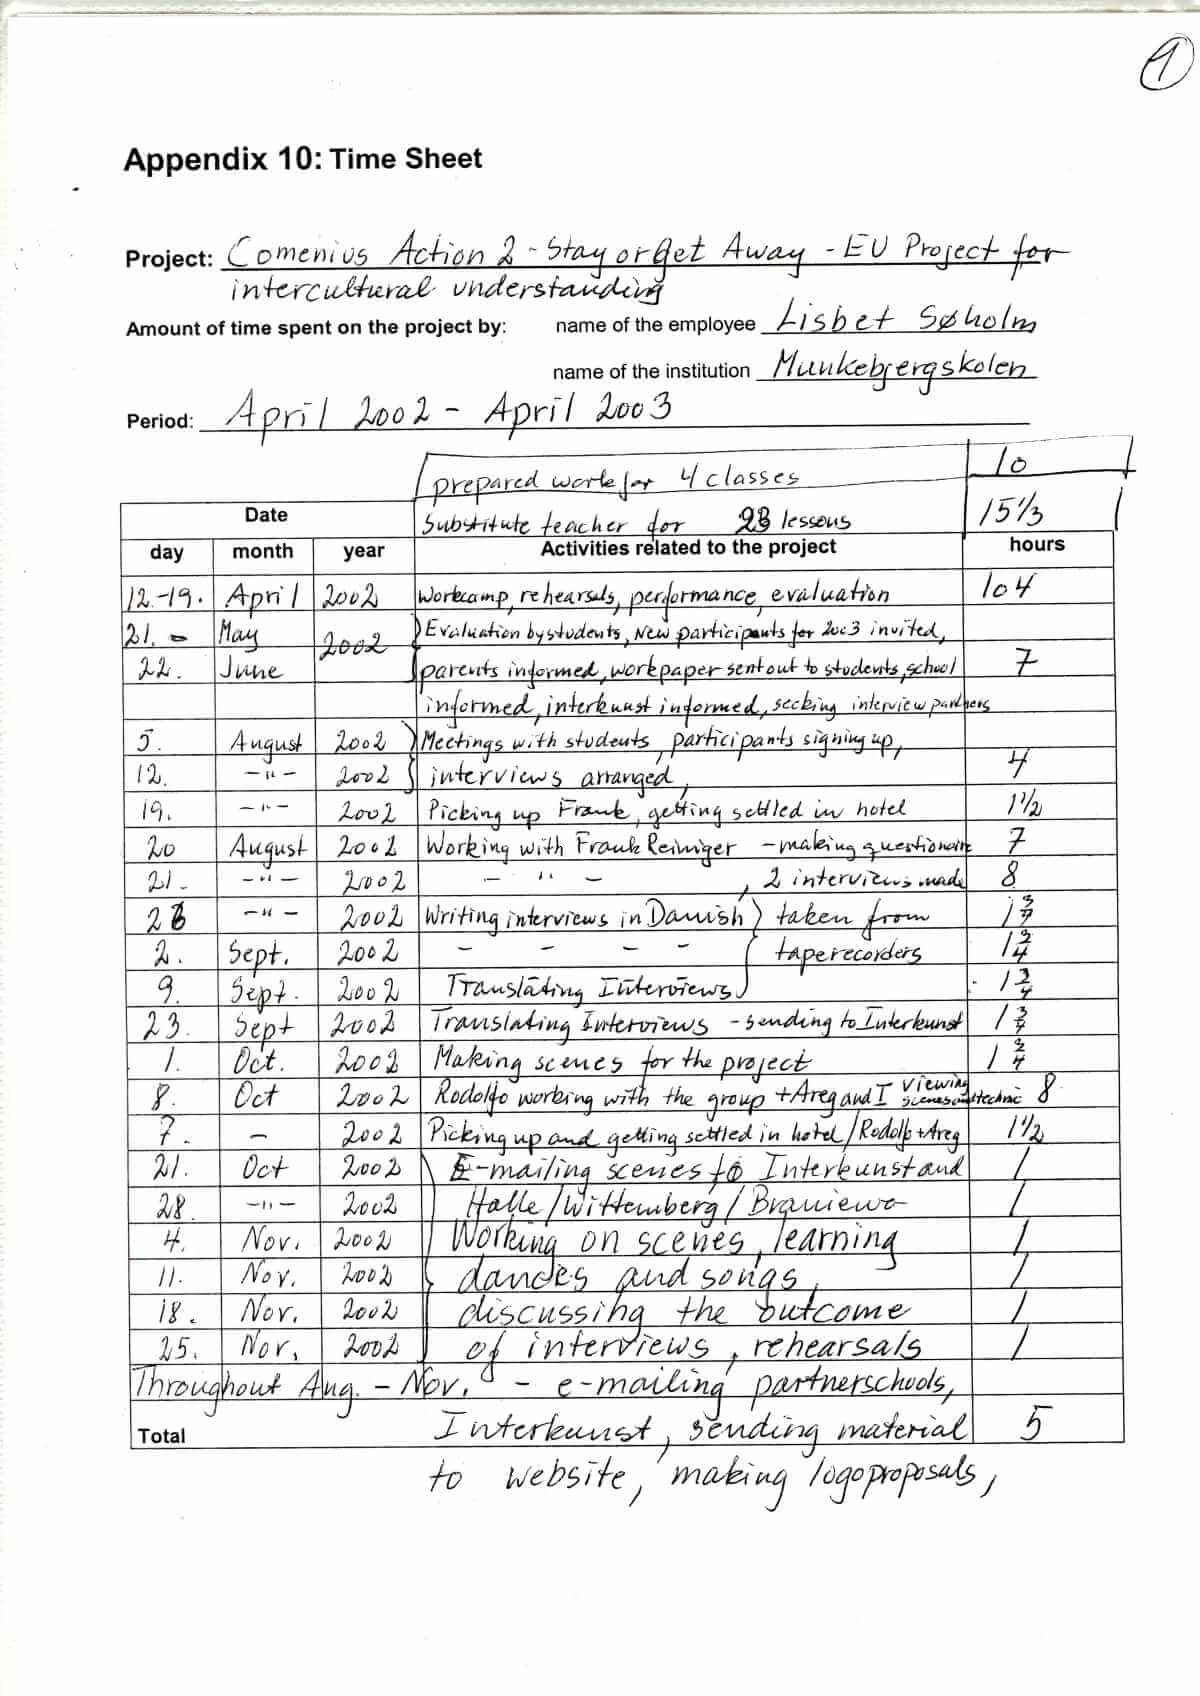 1
Appendix 10: Time Sheet
Project: Comenius Action 2 - Stay or Get Away - EU Project for
intercultural understanding
Amount of time spent on the project by: name of the employee Lisbet Søholm
name of the institution Munkebjergskolen
Period: April 2002 - April 2003
prepared work for 4 classes 10
Date Substitute teacher for 23 lessons 15 1/3
day month year Activities related to the project hours
12.-19. April 2002 Workcamp, rehearsals, performance, evaluation 104
21. - May 2002 Evaluation by students, new participants for 2003 invited,
22. June parents informed, workpaper sent out to students, school 7
informed, interkunst informed, seeking interview partners
5. August 2002 Meetings with students, participants signing up,
12. -"- 2002 interviews arranged, 4
19. -"- 2002 Picking up Frank, getting settled in hotel 1 1/2
20 August 2002 Working with Frank Reiniger - making questionaire 7
21. -"- 2002 - " - , 2 interviews made 8
26 -"- 2002 Writing interviews in Danish) taken from 1 3/4
2. Sept. 2002 - - - - taperecorders 1 3/4
9. Sept. 2002 Translating Interviews 1 3/4
23. Sept 2002 Translating Interviews - sending to Interkunst 1 3/4
1. Oct. 2002 Making scenes for the project 1 3/4
8. Oct 2002 Rodolfo working with the group + Areg and I viewing scenes and technic 8
7. - 2002 Picking up and getting settled in hotel / Rodolfo + Areg 1 1/2
21. Oct 2002 E-mailing scenes to Interkunst and 1
28. -"- 2002 Halle/Wittemberg/Braniewo 1
4. Nov. 2002 Working on scenes, learning 1
11. Nov. 2002 dances and songs, 1
18. Nov. 2002 discussing the outcome 1
25. Nov. 2002 of interviews, rehearsals 1
Throughout Aug. - Nov. - e-mailing partnerschools,
Total Interkunst, sending material 5
to website, making logoproposals,